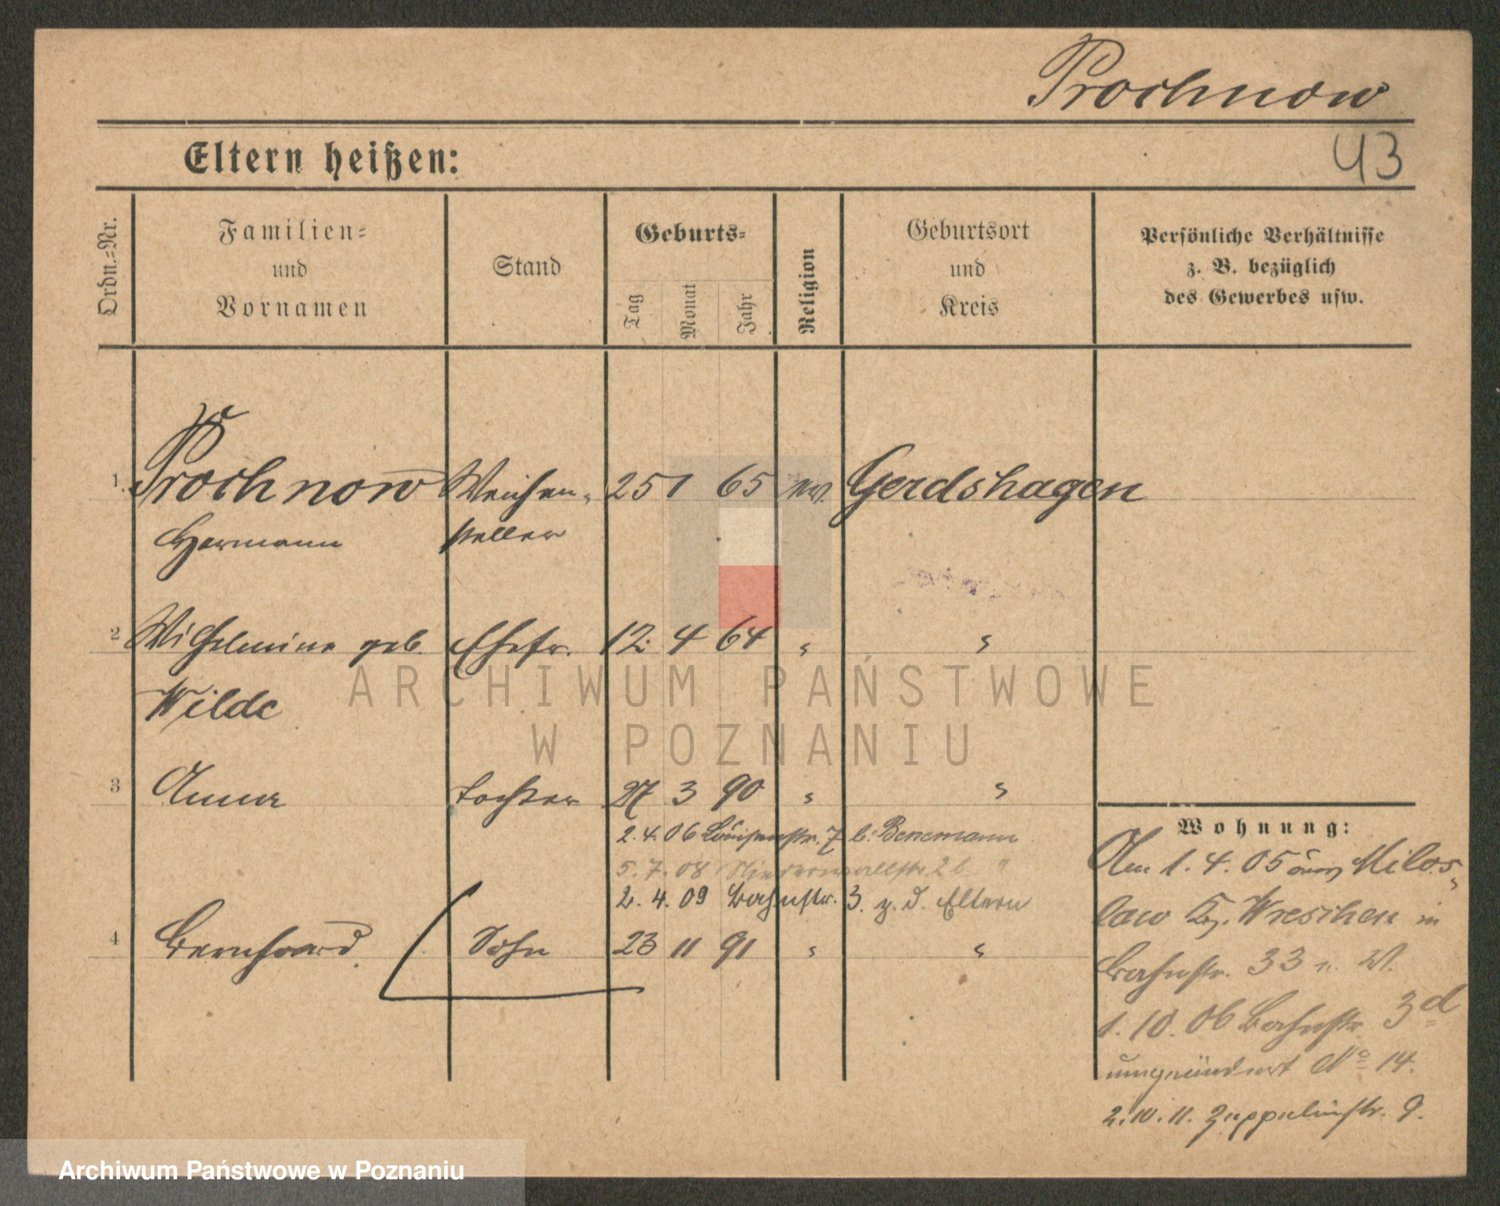 Prochnow
Eltern heißen:
43
Ordn.-Nr.
Familien-
und
Vornamen
Stand
Geburts-
Tag
Monat
Jahr
Religion
Geburtsort
und
Kreis
Persönliche Verhältnisse
z. B. bezüglich
des Gewerbes usw.
1. Prochnow Weichen- 25 1 65 ev. Gerdshagen
Hermann steller
2 Wilhelmine geb. Ehefr. 12. 4 64 " "
Wilde
3 Anna Tochter 27 3 90 " "
2. 4. 06 Louisenstr. 7 b. Benemann
5. 7. 08 Niederwallstr. 26 "
2. 4. 09 Bahnstr. 3. z. d. Eltern
4 Bernhard Sohn 23 11 91 " "
Wohnung:
Am 1. 4. 05 aus Milos-
law Kr. Wreschen in
Bahnstr. 33
1. 10. 06 Bahnstr. 3d
umgeändert No 14.
2. 10. 11. Zeppelinstr. 9.
ARCHIWUM PAŃSTWOWE
W POZNANIU
Archiwum Państwowe w Poznaniu